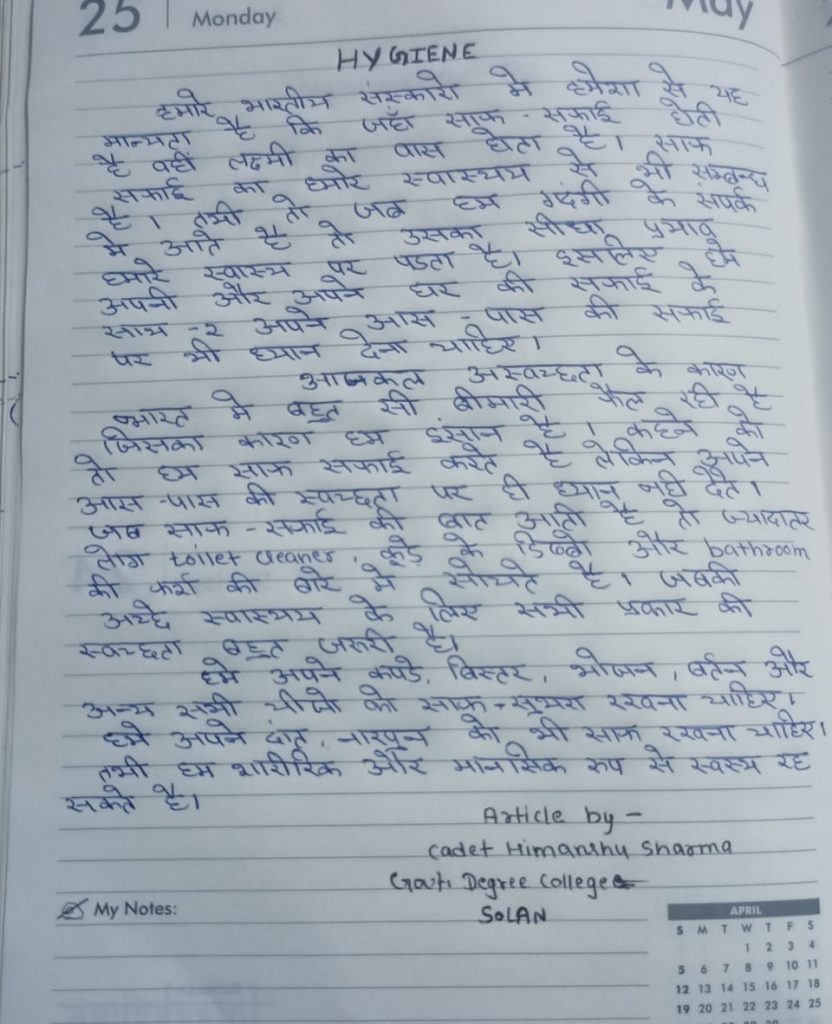 25 Monday May
HYGIENE
हमारे भारतीय संस्कारो मे हमेशा से यह
मान्यता है कि जहाँ साफ - सफाई होती
है वही लक्ष्मी का वास होता है। साफ
सफाई का हमारे स्वास्थ्यय से भी सम्बन्ध
है। तभी तो जब हम गदंगी के संपर्क
मे आते है तो उसका सीधा प्रभाव
हमारे स्वास्थ्य पर पडता है। इसलिए हमे
अपनी और अपने घर की सफाई के
साथ -२ अपने आस - पास की सफाई
पर भी ध्यान देना चाहिए।
आजकल अस्वच्छता के कारण
भारत मे बहुत सी बीमारी फैल रही है
जिसका कारण हम इंसान है। कहने को
तो हम साफ सफाई करते है लेकिन अपने
आस -पास की स्वच्छता पर ही ध्यान नही देते।
जब साफ - सफाई की बात आती है तो ज्यादातर
लोग toilet cleaner, कूडे के डिब्बे और bathroom
की फर्श की बारे मे सोचते है। जबकी
अच्छे स्वास्थ्यय के लिए सभी प्रकार की
स्वच्छता बहुत जरुरी है।
हमे अपने कपडे, बिस्तर, भोजन, बर्तन और
अन्य सभी चीजो को साफ - सुथरा रखना चाहिए।
हमे अपने दांत, नाखुन को भी साफ रखना चाहिए।
तभी हम शारीरिक और मानसिक रुप से स्वस्थ रह
सकते है।
Article by -
Cadet Himanshu Sharma
Govt. Degree College
SOLAN
My Notes:
APRIL
S M T W T F S
1 2 3 4
5 6 7 8 9 10 11
12 13 14 15 16 17 18
19 20 21 22 23 24 25